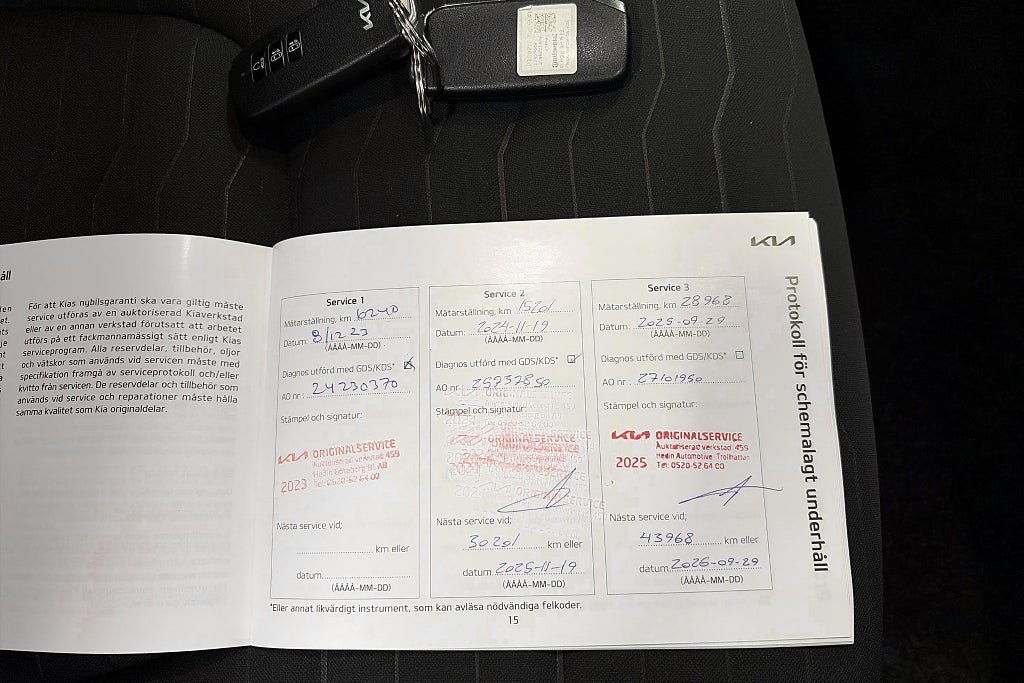 KIA
åll
För att Kias nybilsgaranti ska vara giltig måste
service utföras av en auktoriserad Kiaverkstad
eller av en annan verkstad förutsatt att arbetet
utförs på ett fackmannamässigt sätt enligt Kias
serviceprogram. Alla reservdelar, tillbehör, oljor
och vätskor som används vid servicen måste med
specifikation framgå av serviceprotokoll och/eller
kvitto från servicen. De reservdelar och tillbehör som
används vid service och reparationer måste hålla
samma kvalitet som Kia originaldelar.
KIA
Protokoll för schemalagt underhåll
Service 1
Mätarställning, km 6240
Datum: 8/12 23
(ÅÅÅÅ-MM-DD)
Diagnos utförd med GDS/KDS*
AO nr.: 24230370
Stämpel och signatur:
KIA ORIGINALSERVICE
Auktoriserad verkstad 459
Hedin Göteborg Bil AB
2023 Tel: 0520-52 64 00
Nästa service vid;
km eller
datum
(ÅÅÅÅ-MM-DD)
Service 2
Mätarställning, km 15201
Datum: 2024-11-19
(ÅÅÅÅ-MM-DD)
Diagnos utförd med GDS/KDS*
AO nr.: 25732850
Stämpel och signatur:
ORIGINALSERVICE
Nästa service vid;
30201 km eller
datum 2025-11-19
(ÅÅÅÅ-MM-DD)
Service 3
Mätarställning, km 28968
Datum: 2025-09-29
(ÅÅÅÅ-MM-DD)
Diagnos utförd med GDS/KDS*
AO nr.: 27101950
Stämpel och signatur:
KIA ORIGINALSERVICE
Auktoriserad verkstad 459
Hedin Automotive Trollhättan
2025 Tel: 0520-52 64 00
Nästa service vid;
43968 km eller
datum 2026-09-29
(ÅÅÅÅ-MM-DD)
*Eller annat likvärdigt instrument, som kan avläsa nödvändiga felkoder.
15